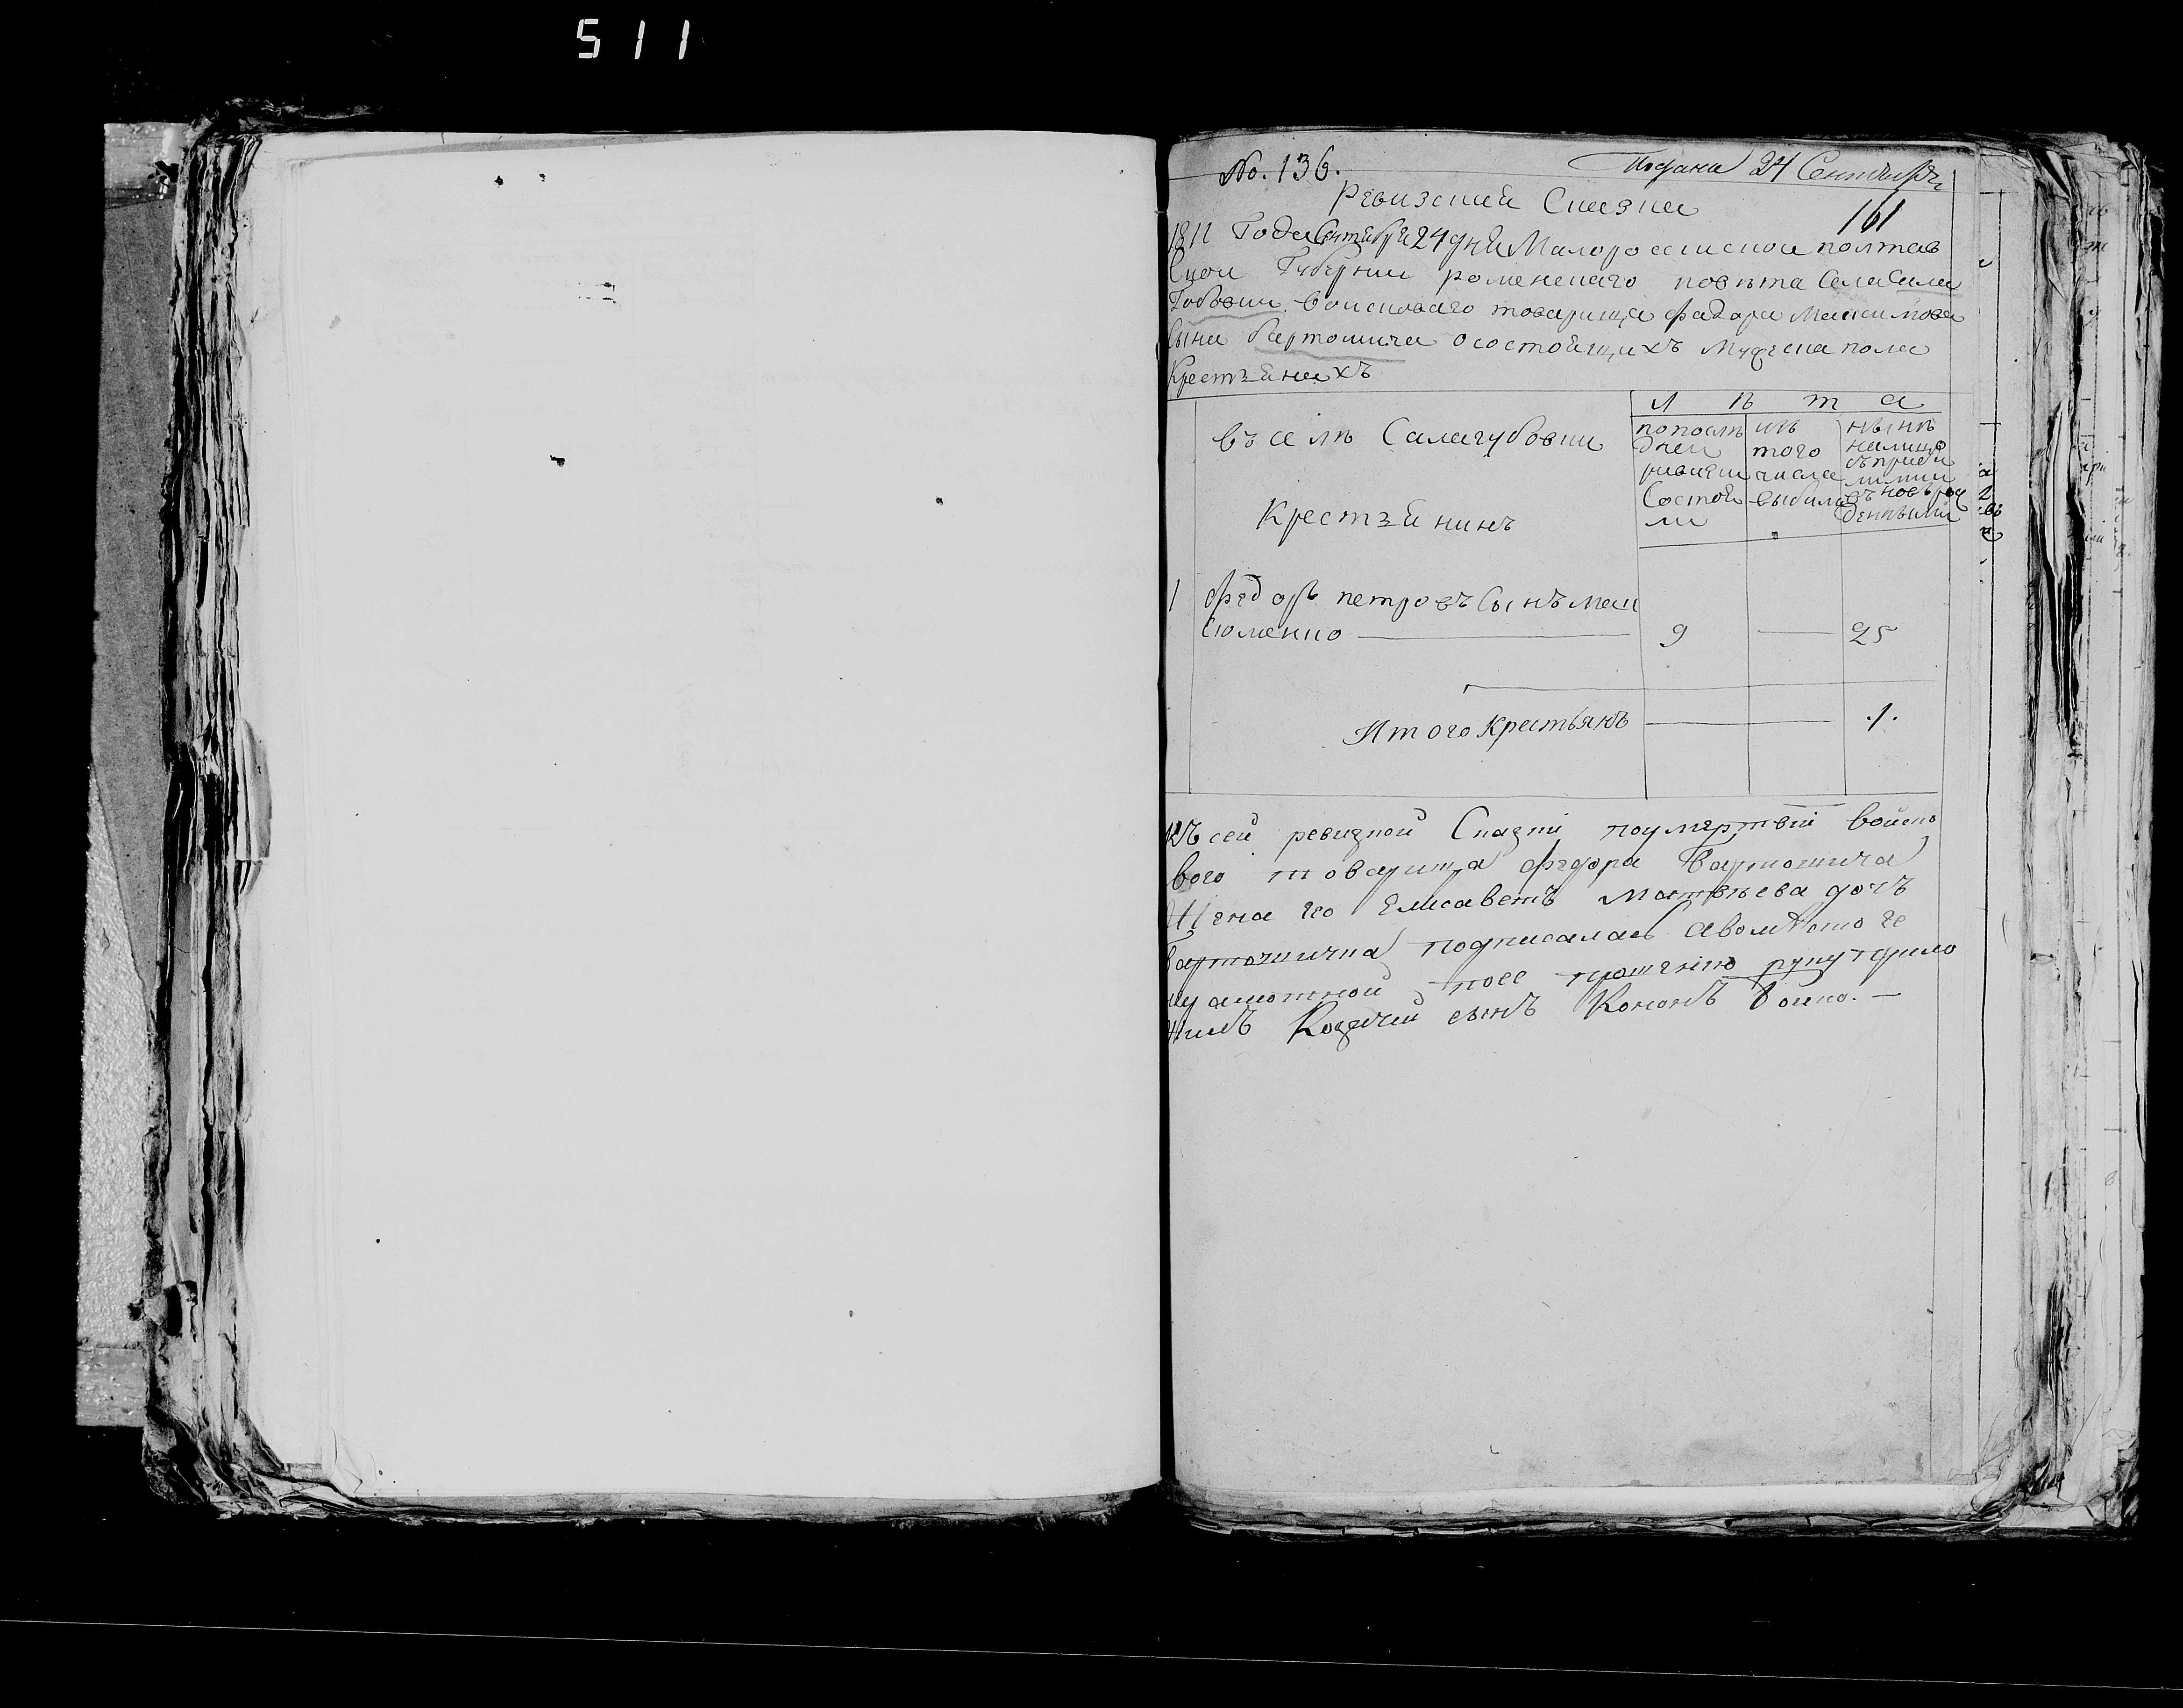 511
No. 136.
Подана 24 Сентября
Ревизская Сказка
161
1811 Года Сентября 24 дня Малороссиской полтав
Скои Губернии роменскаго повѣта Села Сала
Губовки воисковаго товарища Фадора Максимова
Сына Бартошича осостоящихъ Мужеска пола
Крестъянахъ
лѣта
въ селѣ Салагубовки
попослѣ
дней
ревизии
Состоя
ли
изъ
того
числа
выбыло
нынѣ
налицо
съприбы
лыми
въновърож
денными
Крестъянинъ
1 Федоръ петровъ Сынъ Мак
сюменко 9 — 25
Итого Крестьянъ — 1.
Къ сей ревизкой Сказки поумертвіи войско
вого товарища Федора Бартошича
Жена его Елисаветъ Матвѣева дочъ
Бартошичка подписалась Авомѣсто не
грамотной поее прошенію руку прило
жилъ Козачій сынъ Кононъ Бойко. —